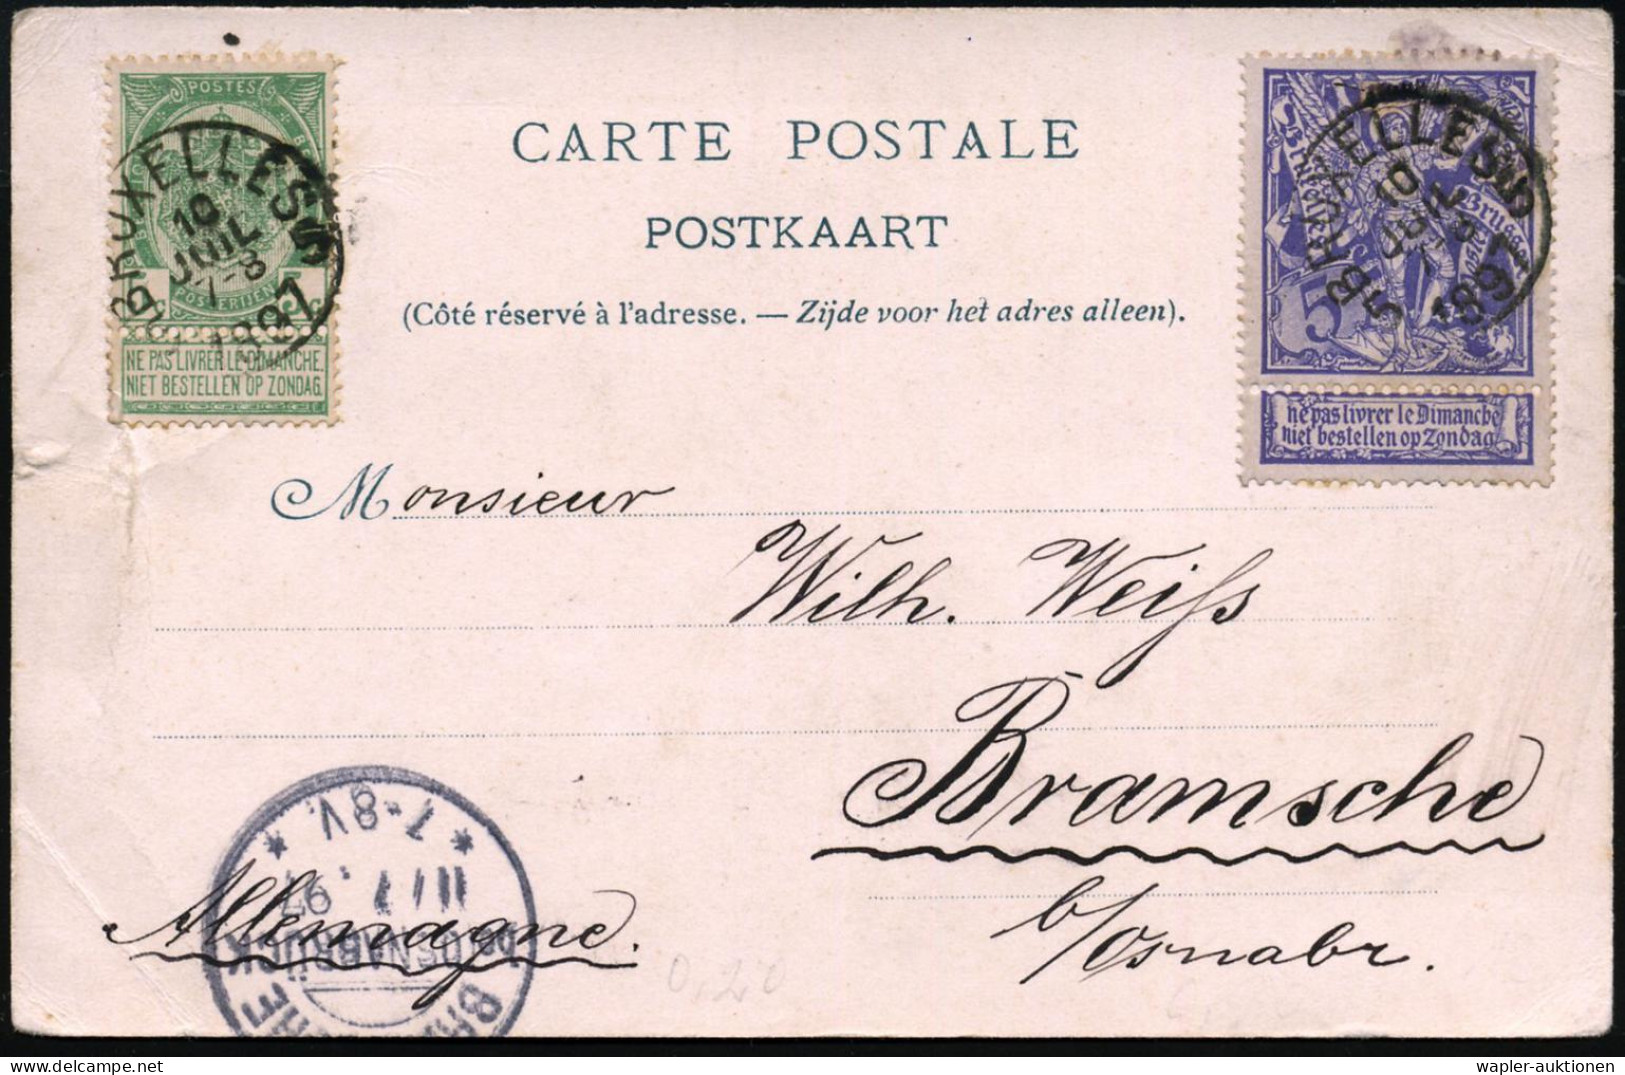 POSTES
5c
POSTERIJEN
NE PAS LIVRER LE DIMANCHE.
NIET BESTELLEN OP ZONDAG.
BRUXELLES 5
10
JUIL
7-8
1897
CARTE POSTALE
POSTKAART
(Côté réservé à l'adresse. — Zijde voor het adres alleen).
Brussel
5
ne pas livrer le Dimanche
niet bestellen op Zondag
BRUXELLES
10
JUIL
1897
5
Monsieur
Wilh. Weiss
Bramsche
b/Osnabr.
Allemagne.
* 7-8V. *
11/7.97
Bz. OSNABRÜCK
0,20
wapler-auktionen